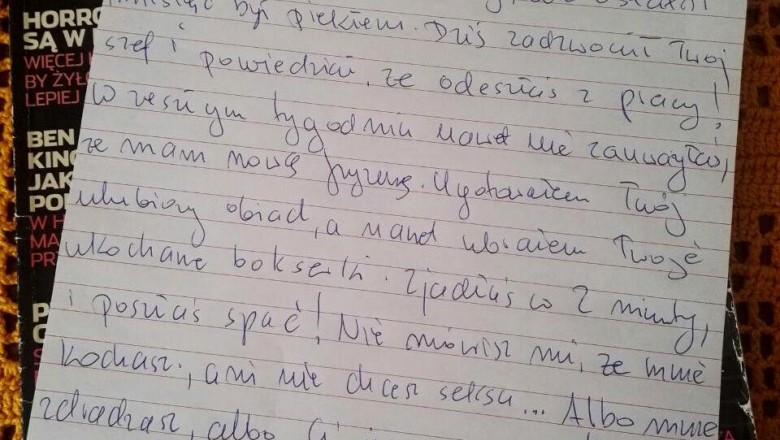 być piekłem. Dziś zadzwonił Twój
szef i powiedział, że odeszłaś z pracy!
W zeszłym tygodniu nawet nie zauważyłaś,
że mam nową fryzurę. Ugotowałem Twój
ulubiony obiad, a nawet ubrałem Twoje
ukochane bokserki. Zjadłaś w 2 minuty,
i poszłaś spać! Nie mówisz mi, że mnie
kochasz, ani nie chcesz seksu... Albo mnie
zdradzasz, albo
HORRO
SĄ W
WIĘCEJ
BY ŻYŁO
LEPIEJ
BEN
KING
JAK
POL
W H
MA
PR